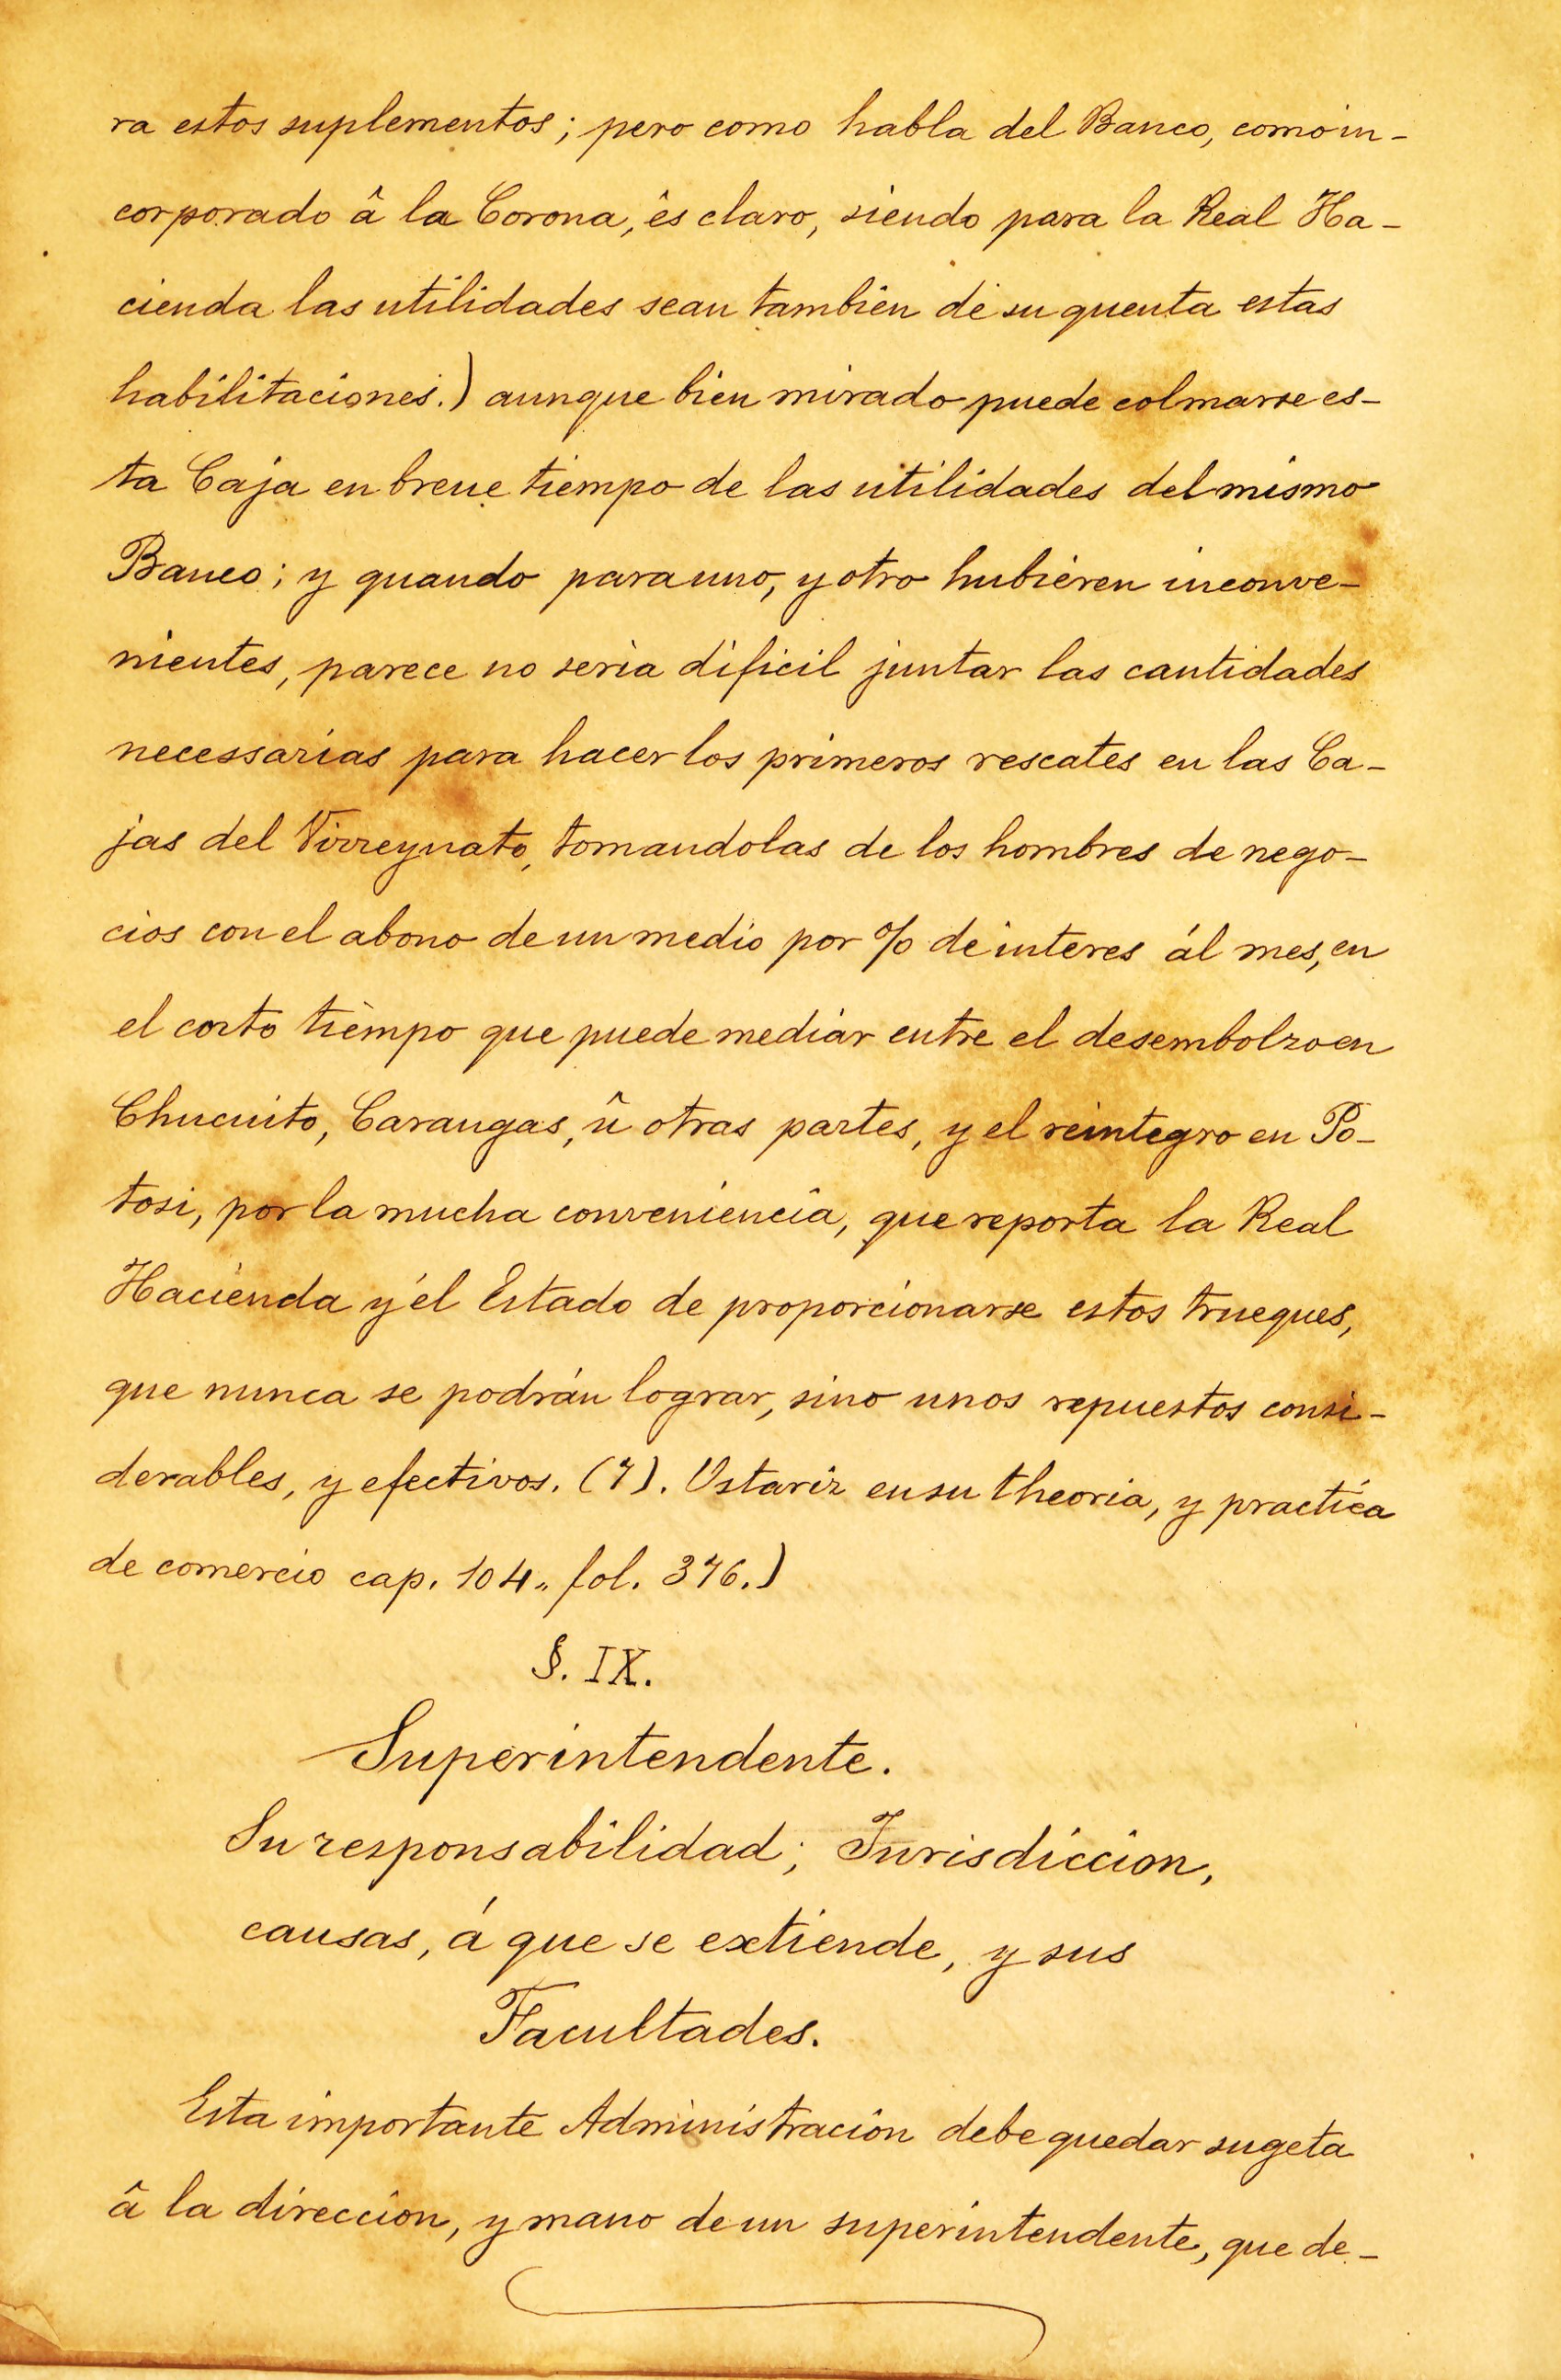 ra estos suplementos; pero como habla del Banco, como in-
corporado â la Corona, ês claro, siendo para la Real Ha-
cienda las utilidades sean tambièn de su quenta estas
habilitaciones.) aunque bien mirado puede colmarse es-
ta Caja en breue tiempo de las utilidades del mismo
Banco; y quando para uno, y otro hubieren inconve-
nientes, parece no seria dificil juntar las cantidades
necessarias para hacer los primeros rescates en las Ca-
jas del Virreynato, tomandolas de los hombres de nego-
cios con el abono de un medio por % de interes ál mes, en
el corto tièmpo que puede mediar entre el desembolzo en
Chucuito, Carangas, û otras partes, y el reintegro en Po-
tosi, por la mucha conveniencia, que reporta la Real
Hacienda y él Estado de proporcionarse estos trueques,
que nunca se podrán lograr, sino unos repuestos consi-
derables, y efectivos. (7). Ustariz en su theoria, y practica
de comercio cap. 104.. fol. 376.)
§. IX.
Superintendente.
Su responsabilidad; Jurisdiccion,
causas, á que se extiende, y sus
Facultades.
Esta importante Administraciôn debe quedar sugeta
â la direcciôn, y mano de un superintendente, que de-